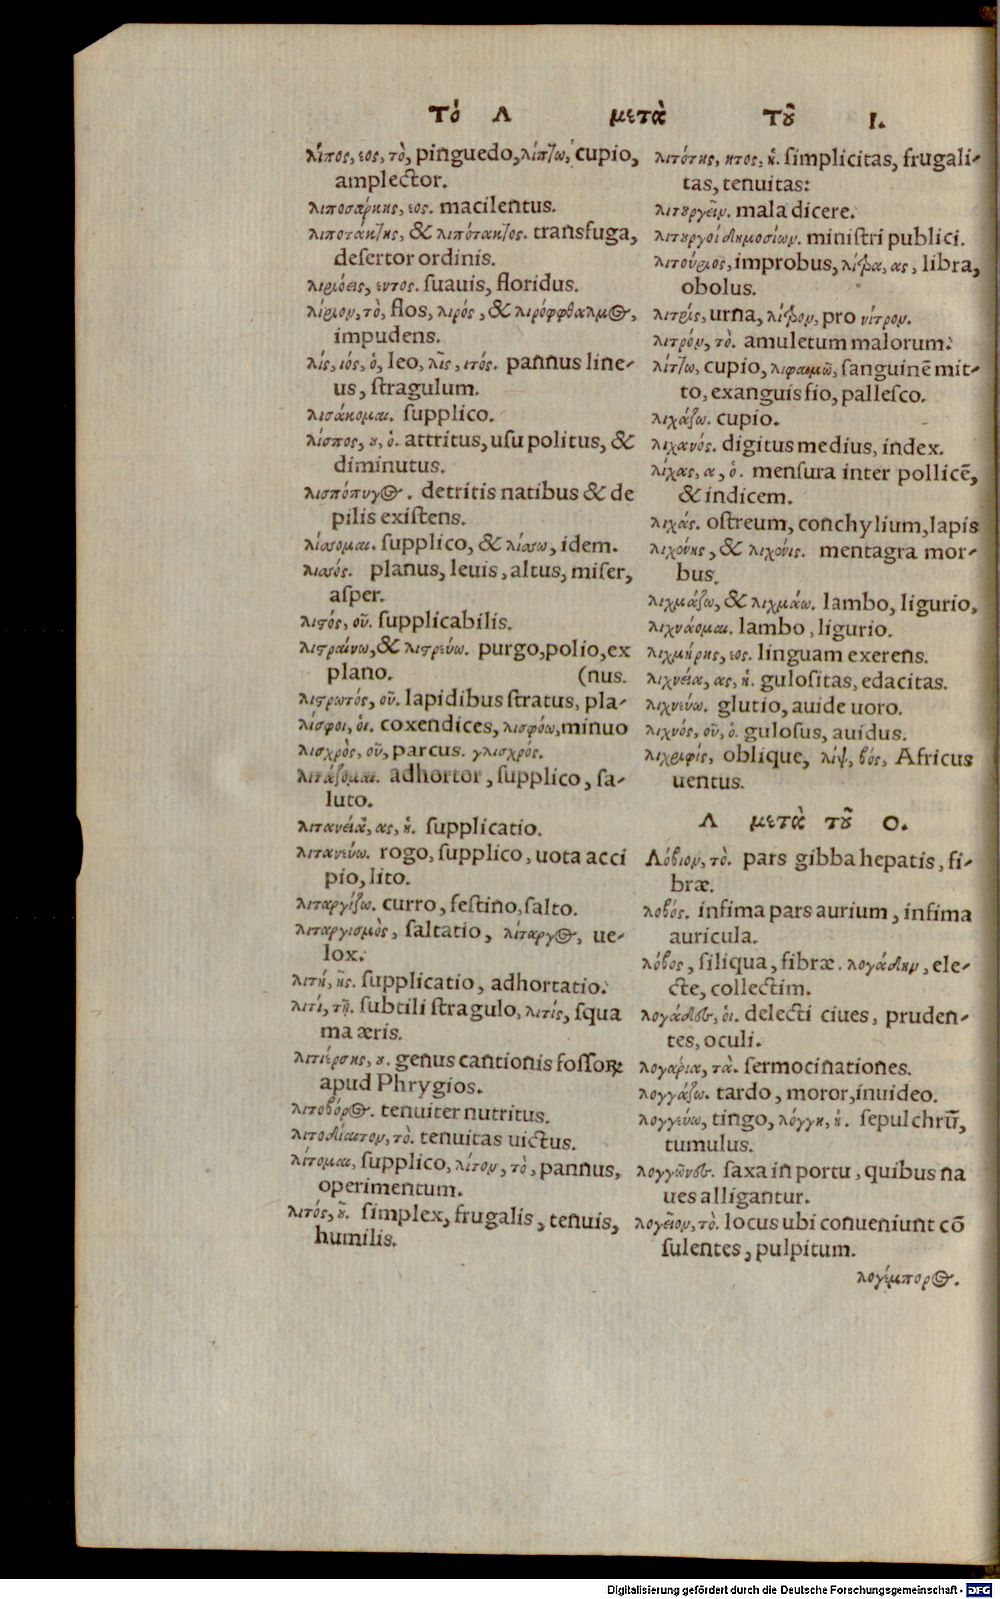 Τό Λ μετὰ τοῦ Ι.
λίπος, εος, τὸ, pinguedo, λίπτω, cupio,
amplector.
λιποσάρκης, εος. macilentus.
λιποτάκτης, & λιπότακτος. transfuga,
desertor ordinis.
λιριόεις, εντος. suauis, floridus.
λίριον, τὸ, flos, λιρός, & λιρόφθαλμος,
impudens.
λίς, ιός, ὁ, leo, λῖς, ιτός. pannus line-
us, stragulum.
λισάκομαι. supplico.
λίσπος, ου, ὁ. attritus, usu politus, &
diminutus.
λισπόπυγος. detritis natibus & de
pilis existens.
λίσσομαι. supplico, & λίσσω, idem.
λισσός. planus, leuis, altus, miser,
asper.
λιστός, οῦ. supplicabilis.
λιστραίνω, & λιστρεύω. purgo, polio, ex
plano. (nus.
λιστρωτός, οῦ. lapidibus stratus, pla-
λίσφοι, οἱ. coxendices, λισφόω, minuo
λισχρὸς, οῦ, parcus. γλισχρός.
λιτάζομαι. adhortor, supplico, sa-
luto.
λιτανεία, ας, ἡ. supplicatio.
λιτανεύω. rogo, supplico, uota acci
pio, lito.
λιταργίζω. curro, festino, salto.
λιταργισμὸς, saltatio, λίταργος, ue-
lox.
λιτή, ῆς. supplicatio, adhortatio.
λιτί, τῷ. subtili stragulo, λιτίς, squa
ma æris.
λιτιέρσης, ου. genus cantionis fossoꝝ
apud Phrygios.
λιτοβόρος. tenuiter nutritus.
λιτοδίαιτον, τὸ. tenuitas uictus.
λίτομαι, supplico, λίτον, τὸ, pannus,
operimentum.
λιτός, οῦ. simplex, frugalis, tenuis,
humilis.
λιτότης, ητος, ἡ. simplicitas, frugali-
tas, tenuitas:
λιτουργεῖν. mala dicere.
λιτουργοί δημοσίων. ministri publici.
λιτούριος, improbus, λίτρα, ας, libra,
obolus.
λιτρίς, urna, λίτρον, pro νίτρον.
λιτρόν, τὸ. amuletum malorum:
λίπτω, cupio, λιφαιμῶ, sanguinẽ mit-
to, exanguis fio, pallesco.
λιχάζω. cupio.
λιχανός. digitus medius, index.
λίχας, α, ὁ. mensura inter pollicẽ,
& indicem.
λιχάς. ostreum, conchylium, lapis
λιχήνης, & λιχήνις. mentagra mor-
bus.
λιχμάζω, & λιχμάω. lambo, ligurio,
λιχνάομαι. lambo, ligurio.
λιχμήρης, εος. linguam exerens.
λιχνεία, ας, ἡ. gulositas, edacitas.
λιχνεύω. glutio, auide uoro.
λιχνός, οῦ, ὁ. gulosus, auidus.
λιχριφίς, oblique, λίψ, βός, Africus
uentus.
Λ μετὰ τοῦ Ο.
Λόβιον, τὸ. pars gibba hepatis, fi-
bræ.
λοβός. infima pars aurium, infima
auricula.
λόβος, siliqua, fibræ. λογάδην, ele-
cte, collectim.
λογάδες, οἱ. delecti ciues, pruden-
tes, oculi.
λογάρια, τὰ. sermocinationes.
λογγάζω. tardo, moror, inuideo.
λογγεύω, tingo, λόγγη, ἡ. sepulchrũ,
tumulus.
λογγῶνες. saxa in portu, quibus na
ues alligantur.
λογεῖον, τὸ. locus ubi conueniunt cõ
sulentes, pulpitum.
λογέμπορος.
Digitalisierung gefördert durch die Deutsche Forschungsgemeinschaft - DFG